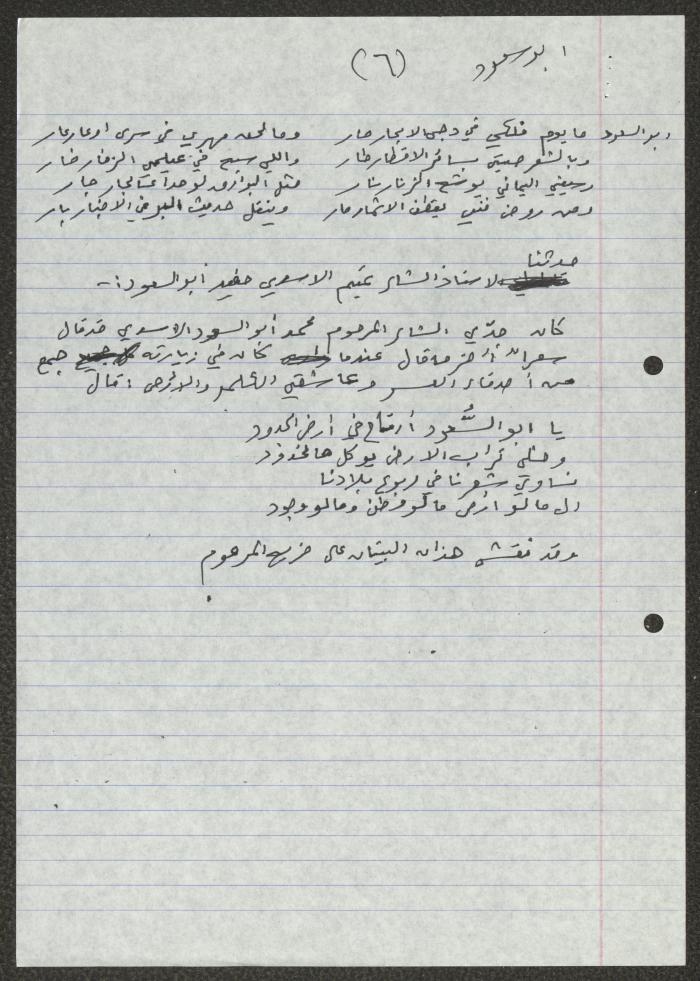 ابو سعود (٦)
ابو السعود ما يوم فلكي في دجى الابحار حار وما لحقه مهري في سرى اوعار عار
وبالشعر صيتي بسائر الاقطار طار واللي سبح في عيلمي الزخار خار
وسيفي اليماني يوشح الزنار نار مثل البوارق لو حدا عَالجار جار
ومن روض فني يقطف الاثمار مار وينقل حديث في الاخبار بار
حدثنا
الاستاذ الشاعر تميم الاسدي حفيد أبو السعود :-
كان جدّي الشاعر المرحوم محمد أبو السعود الاسدي قد قال
شعراً آخر ما قال عندما كان في زيارته جمع
من أصدقاء العمر وعاشقي القلم والارض : قال
يا ابو السُّعود أرتاح في أرض الجدود
وخلي تراب الارض يوكل هالخدود
نساوي شعرنا في ربوع بلادنا
ال ما لو أرض ما لو وطن وما لو وجود
وقد نقش هذان البيتان على ضريح المرحوم